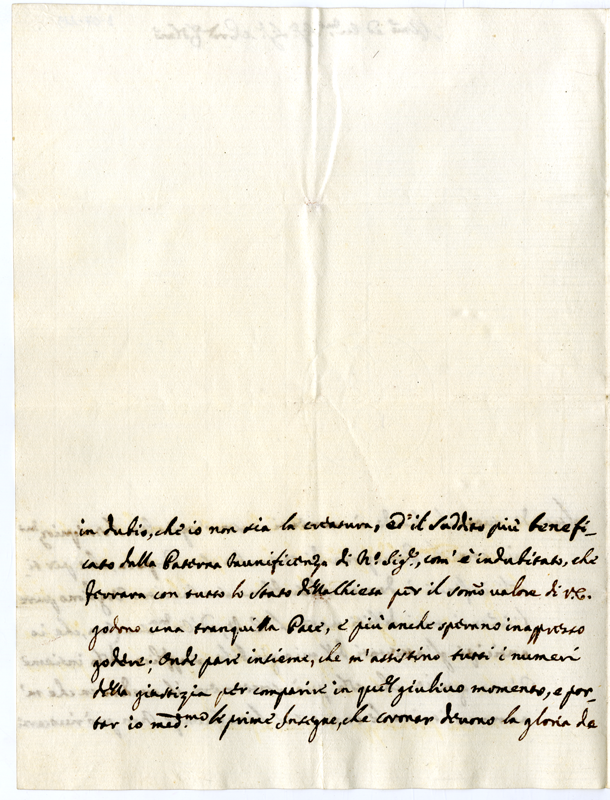 in dubio, che io non sia la creatura, ed' il Suddito più benefi-
cato dalla Paterna munificenza di N.o Sig.e, com' è indubitato, che
Ferrara con tutto lo Stato della Chiesa per il som̃o valore di V.E.
godono una tranquilla Pace, e più anche sperano in appresso
godere; Onde pare insieme, che m' assistino tutti i numeri
della giustizia per comparire in quel giulivo momento, e por-
tar io med.mo le prime Insegne, che coronar devono la gloria de